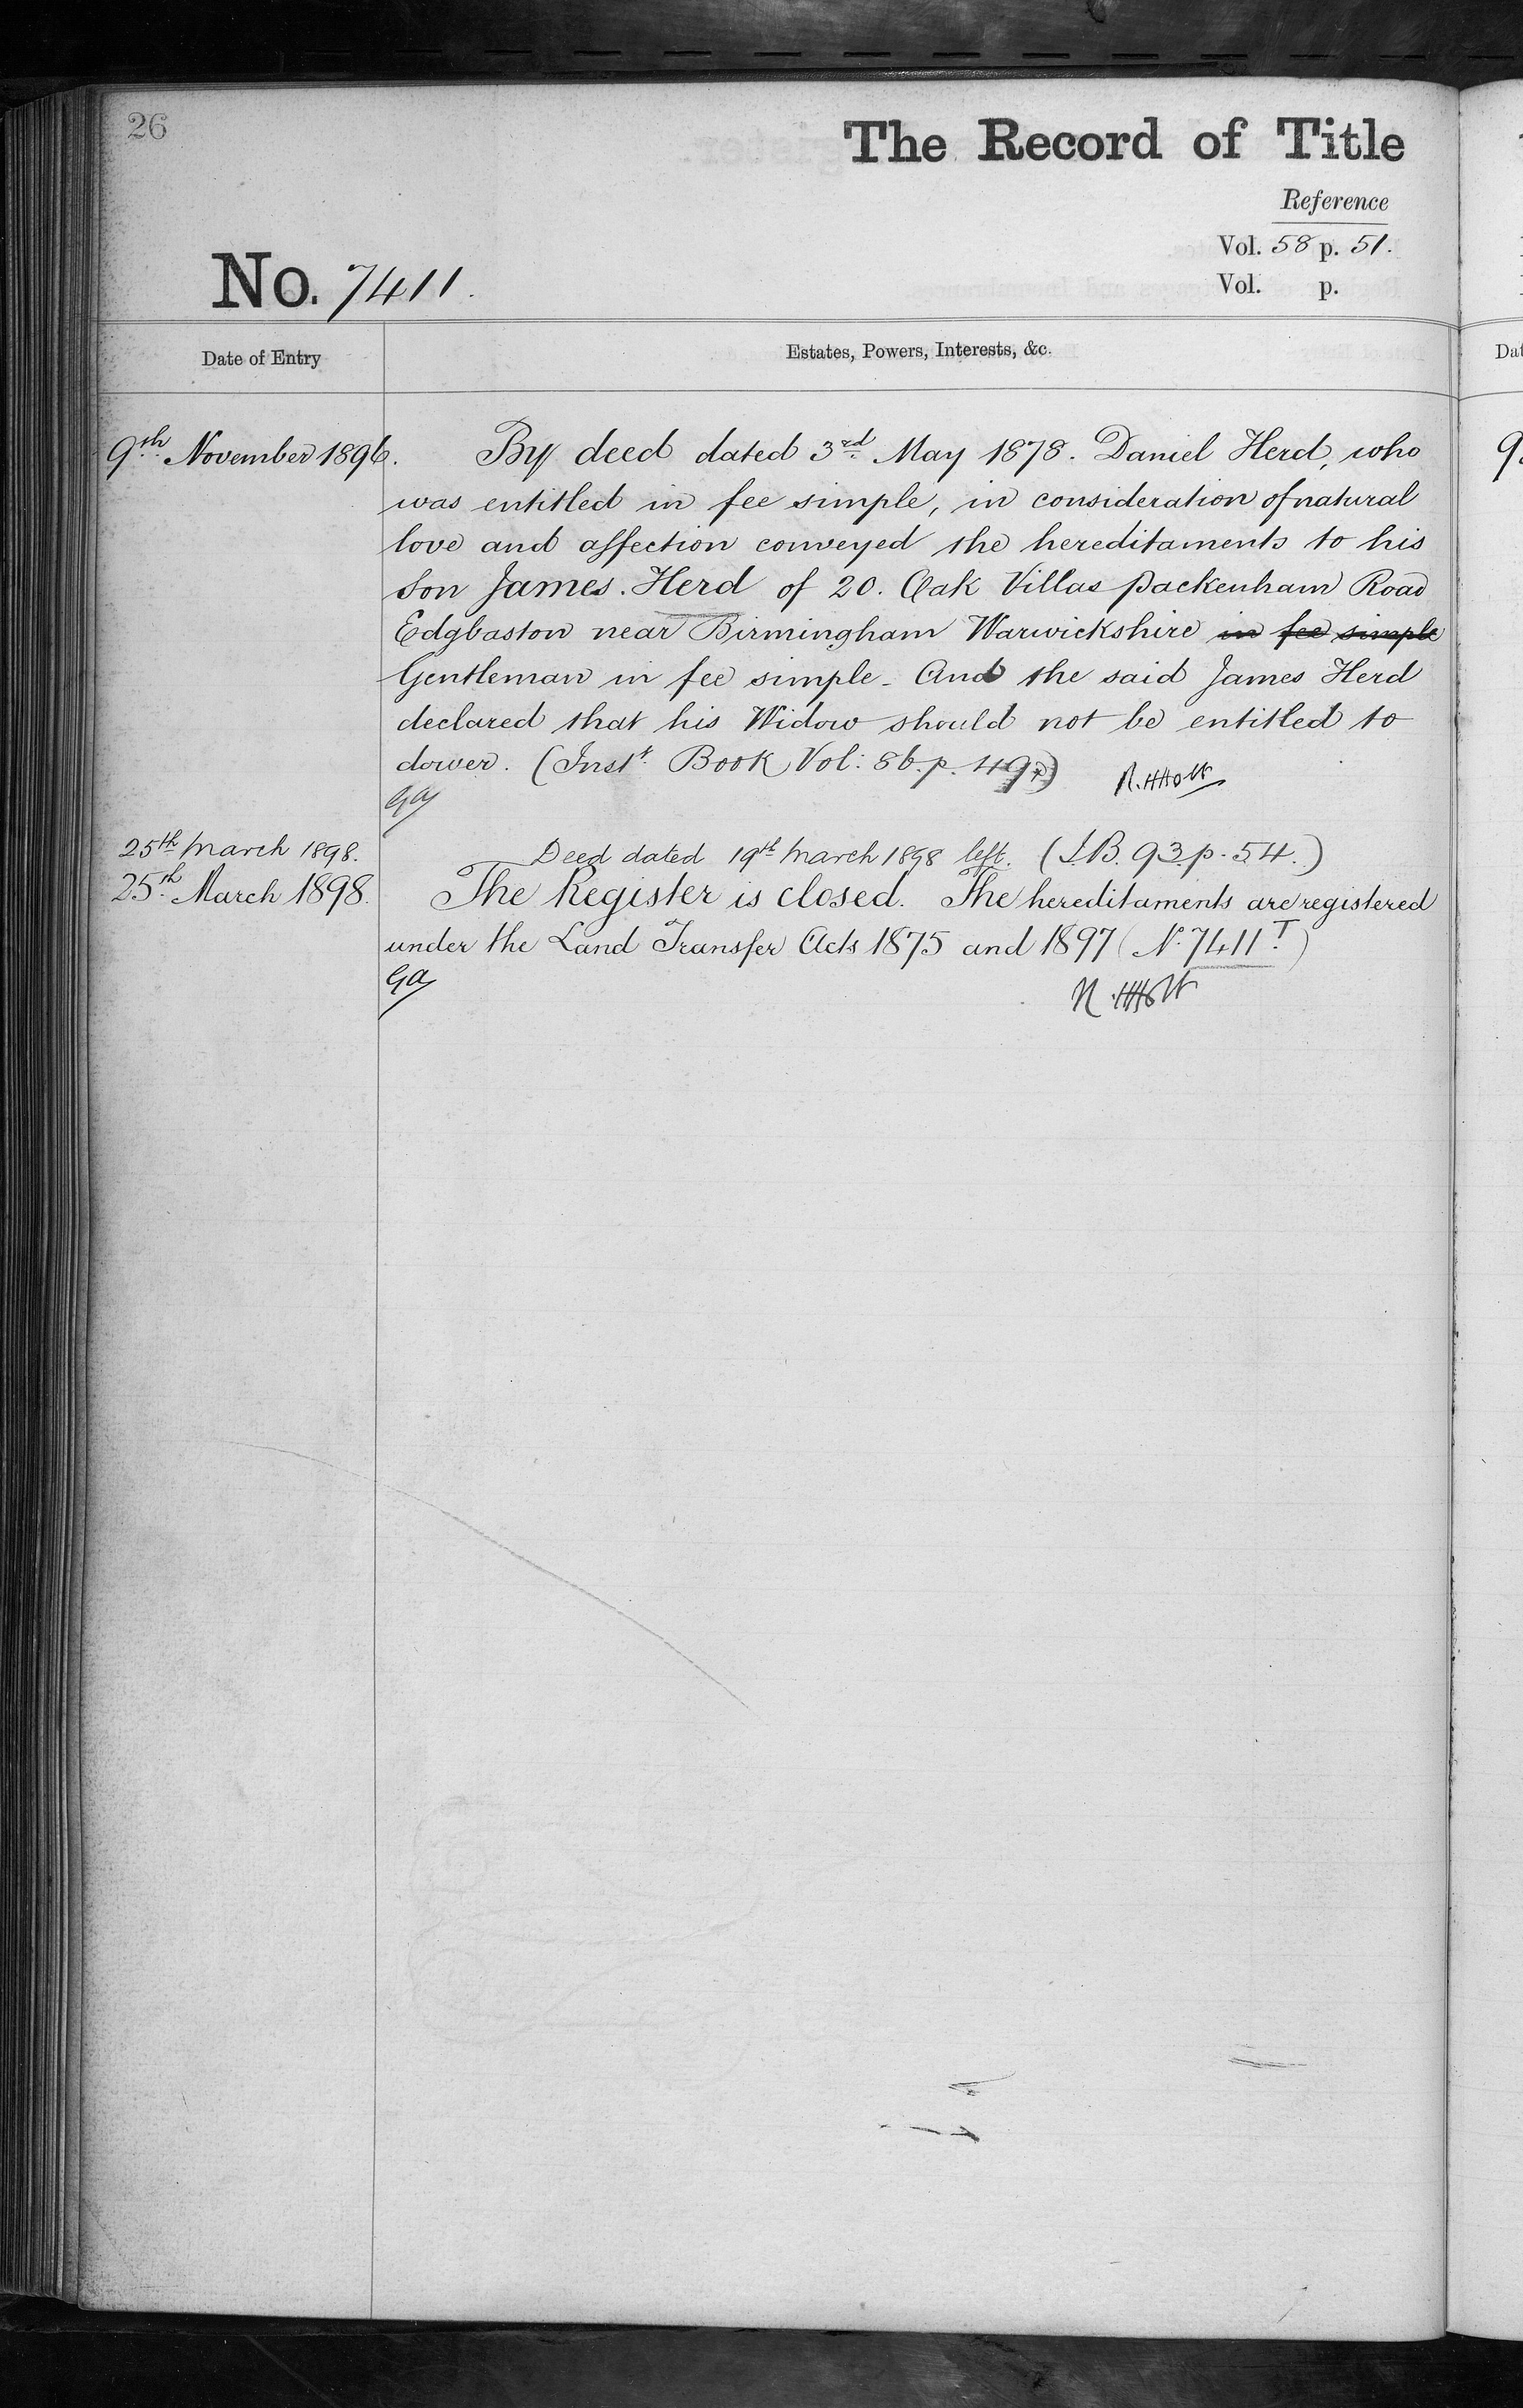 26
The Record of Title
Reference
Vol. 58 p. 51.
No. 7411.
Vol. p.
Date of Entry
Estates, Powers, Interests, &c.
Dat
9th November 1896.
By deed dated 3rd May 1878. Daniel Herd, who
was entitled in fee simple, in consideration of natural
love and affection conveyed the hereditaments to his
Son James. Herd of 20. Oak Villas Packenham Road
Edgbaston near Birmingham Warwickshire in fee simple
Gentleman in fee simple - And the said James Herd
declared that his Widow should not be entitled to
dower. (Instt. Book Vol: 86. p. 49.)
R. HHolt
Ga
25th March 1898.
Deed dated 19th March 1898 left. (I.B. 93. p. 54.)
25th March 1898.
The Register is closed. The hereditaments are registered
under the Land Transfer Acts 1875 and 1897 (No. 7411 T)
Ga
R. HHolt